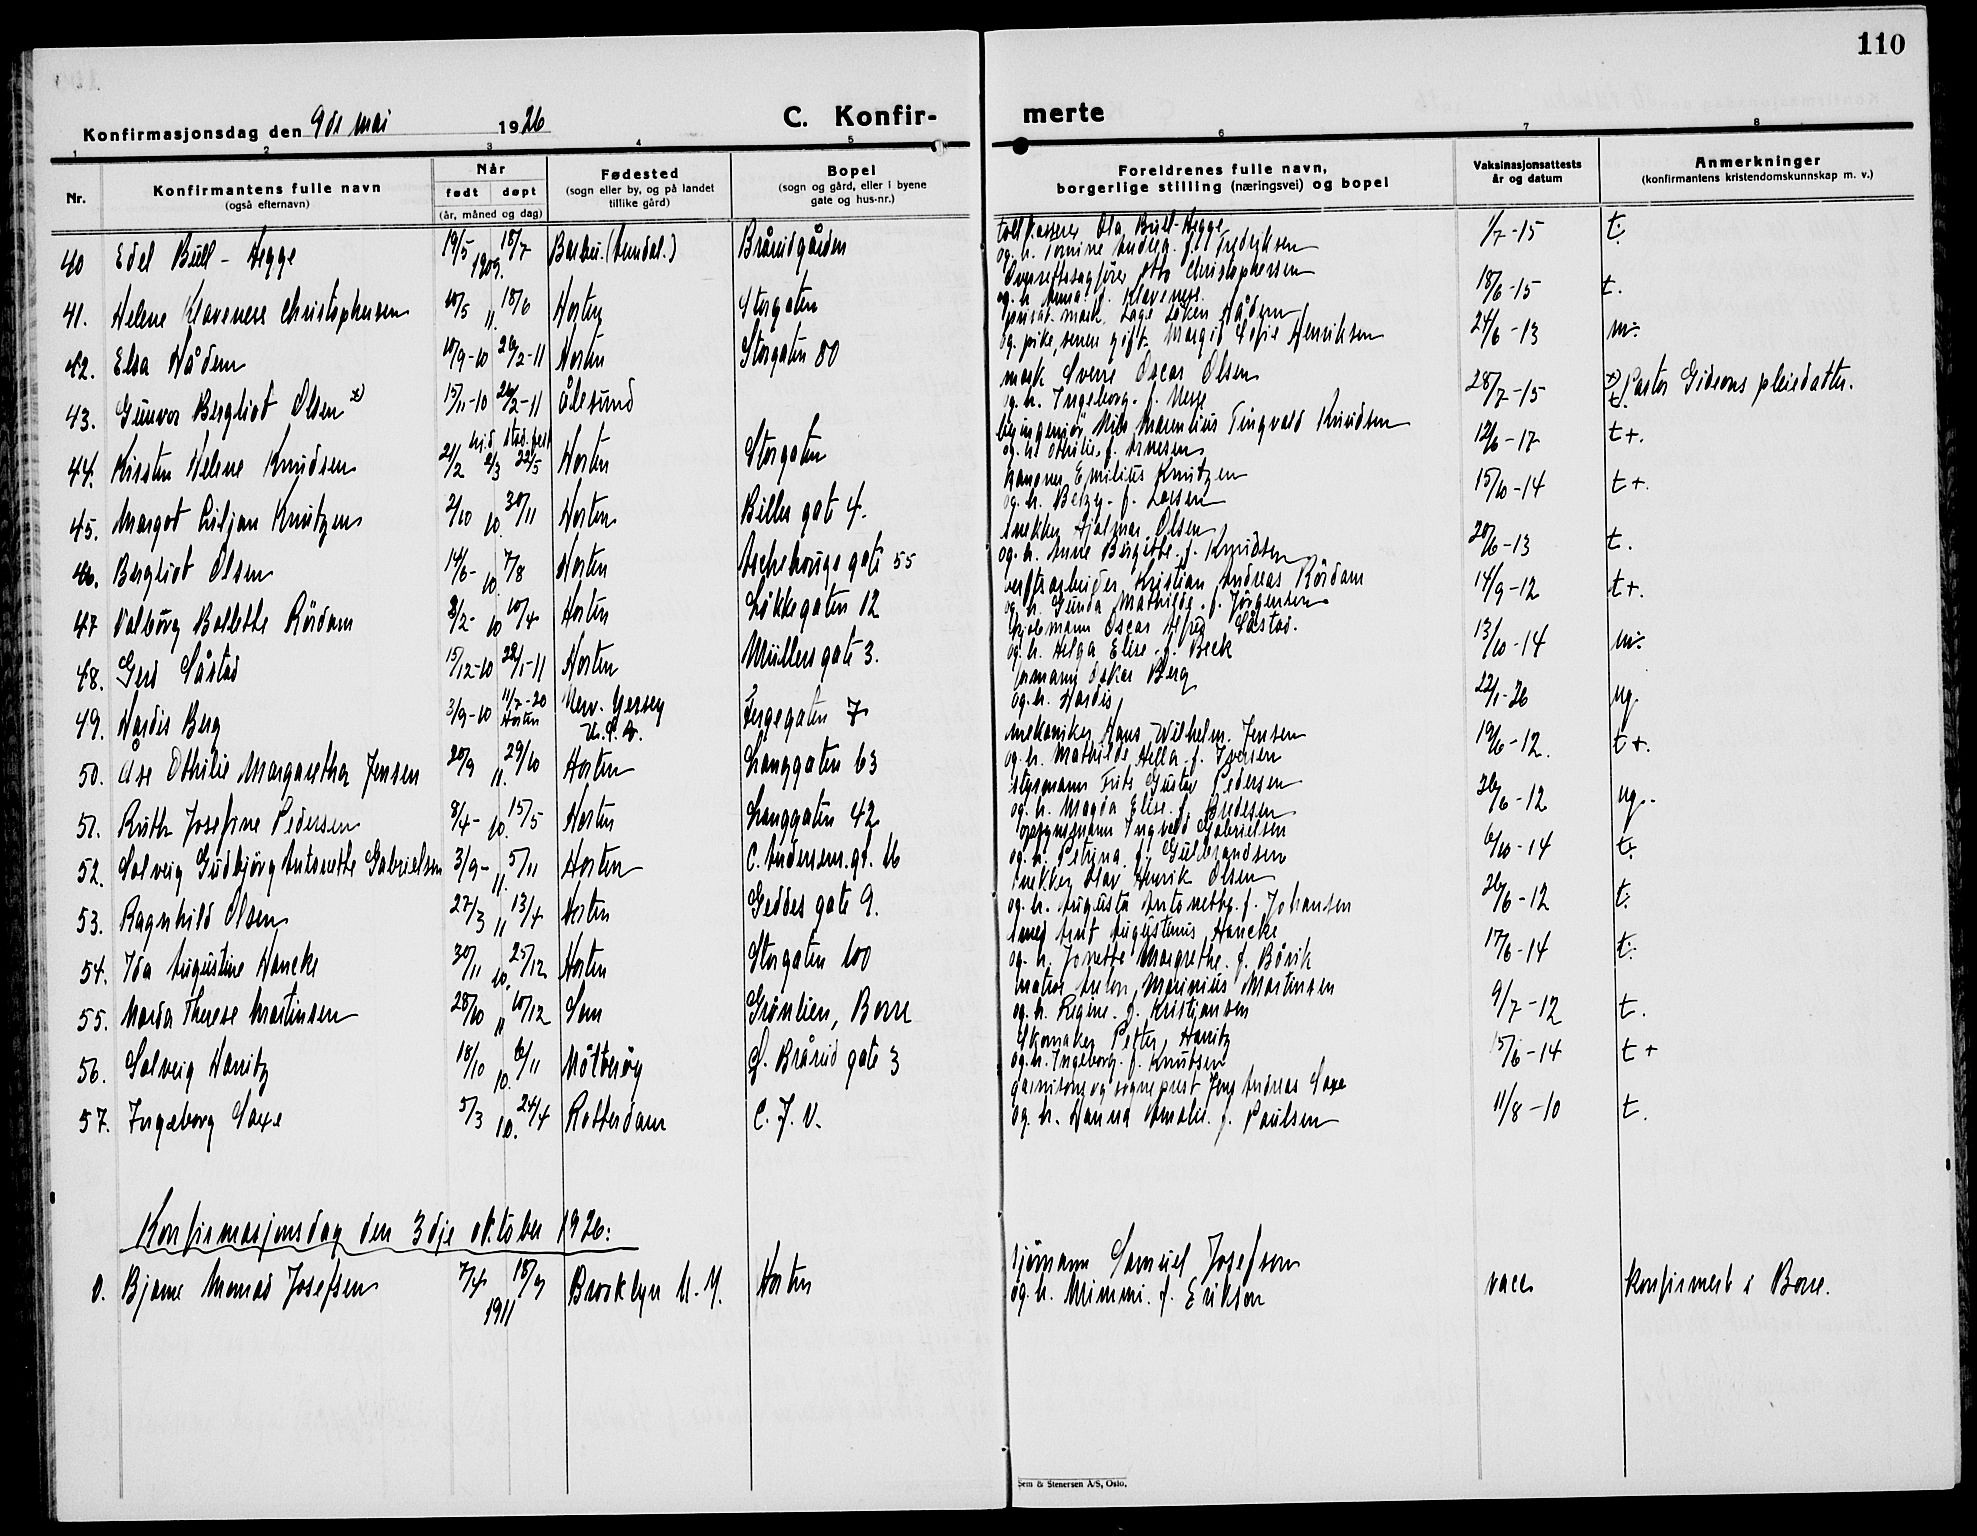 110
Konfirmasjonsdag den 9de mai 1926
C. Konfir-
merte
1 2 3 4 5 6 7 8
Nr.
Konfirmantens fulle navn
(også efternavn)
Når
født døpt
(år, måned og dag)
Fødested
(sogn eller by, og på landet
tillike gård)
Bopel
(sogn og gård, eller i byene
gate og hus-nr.)
Foreldrenes fulle navn,
borgerlige stilling (næringsvei) og bopel
Vaksinasjonsattests
år og datum
Anmerkninger
(konfirmantens kristendomskunnskap m. v.)
40 Edel Bull-Hegge 19/5 18/7 1909. Barbu. (Arendal.) Bråridgården
tollkasserer Ola Bull-Hegge
og h. f. Fredriksen 1/7-15 t.
41. Helene Klavenese Christophersen 10/5 11. 18/6 Horten Storgaten
Overrettssagfører Otto Christophersen
og h. Anna f. Klavenese 18/6-15 t.
42. Elsa Nådem 10/9-10 26/2-11 Horten Storgaten 80
privat. mask. Lage Løken Nådem
og pike, senere gift. Margit Sofie Henriksen 24/6-13 m.
43. Gunvor Bergliot Olsen x) 15/11-10 26/2-11 Ålesund
mask Sverre Oscar Olsen
og h. Ingeborg f. Nesse 28/7-15 x) Pastor Gideons pleiedatter.
t.
44. Kirsten Helene Knudsen 21/2 hjd. 2/3 stad.fest 22/5 Horten Storgaten
byingeniør Nils Marentius Tingvald Knudsen
og h. Othilie f. Arnesen 12/6-17 t+.
45. Margot Liljan Knutzen 2/10 10. 30/11 Horten Billes gat 4.
kanoner Emilius Knutzen
og h. Betzy f. Larsen 15/10-14 t+.
46. Bergliot Olsen 14/6- 10. 7/8 Horten Aschehougs gate 55
snekker Hjalmar Olsen
og h. Anne Birgitte f. Knudsen 20/6-13 t.
47 Valborg Bolette Rørdam 2/2- 10 10/4 Horten Løkkegaten 12
verftsarbeider Kristian Andreas Rørdam
og h. Gunda Mathilde f. Jørgensen 14/9-12 t+.
48. Gerd Såstad 15/12-10 28/1-11 Horten Müllers gate 3.
Oscar Alfred Såstad.
og h. Helga Elise f. Beck 13/10-14 m.
49. Hardis Berg 3/9-10 11/7-20 Horten New. Yersey U.S.A. Fergegaten 7
formann Oskar Berg
og h. Hardis 22/1-26 ng.
50. Åse Othilie Margaretha Jensen 20/9 11. 29/10 Horten Langgaten 63
mekaniker Hans Wilhelm Jensen
og h. Mathilde Hella f. Iversen 19/6-12. t+.
51. Ruth Josefine Pedersen 8/4- 10. 15/5 Horten Langgaten 42
styrmann Frits Gustav Pedersen
og h. Magda Elise f. Bredesen 26/6-12 ng.
52. Solveig Gudbjørg Antonette Gabrielsen 3/9- 11. 5/11 Horten C. Andersens. gt. 16
opsynsmann Ingvald Gabrielsen
og h. Petrina f. Gulbrandsen 6/10-14 t.
53. Ragnhild Olsen 27/3 11 13/4 Horten Geddes gate 9.
snekker Olav Henrik Olsen
og h. Augusta Antonette f. Johansen 26/6-12 t.
54. Ida Augustine Hancke 30/11 10. 25/12 Horten Storgaten 100
smed Arnt Augustinus Hancke
og h. Jonette Margrethe f. Børik 17/6-14 t.
55. Marda Therese Martinsen 28/10 11 10/12 Sem Grønlien, Borre
matros Anton Marinius Martinsen
og h. Regine f. Kristjansen 9/7-12 t.
56. Solveig Hanitz 18/10 10. 6/11 Nøtterøy S. Brårud gate 3
Skomaker Petter Hanitz
og h. Ingeborg f. Knudsen 15/6-14 t+
57. Ingeborg Saxe 5/3 10. 24/4 Rotterdam C. J. V.
garnisons og sogneprest Jens Andreas Saxe
og h. Hanna Amalie f. Paulsen 11/8-10 t.
Konfirmasjonsdag den 3dje oktober 1926:
0. Bjarne Thomas Josefsen 7/4 18/9 1911 Brooklyn N.Y. Horten
sjømann Samuel Josefson
og h. Mimmi f. Erikson vacc konfirmert i Borre.
Sem & Stenersen A/S, Oslo.